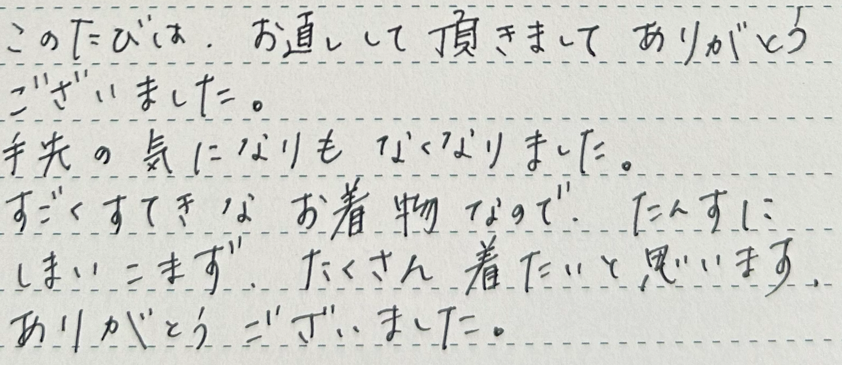 このたびは、お直しして頂きまして ありがとう
ございました。
手先の気になりも なくなりました。
すごくすてきな お着物なので、たんすに
しまいこまず、たくさん 着たいと思います。
ありがとうございました。